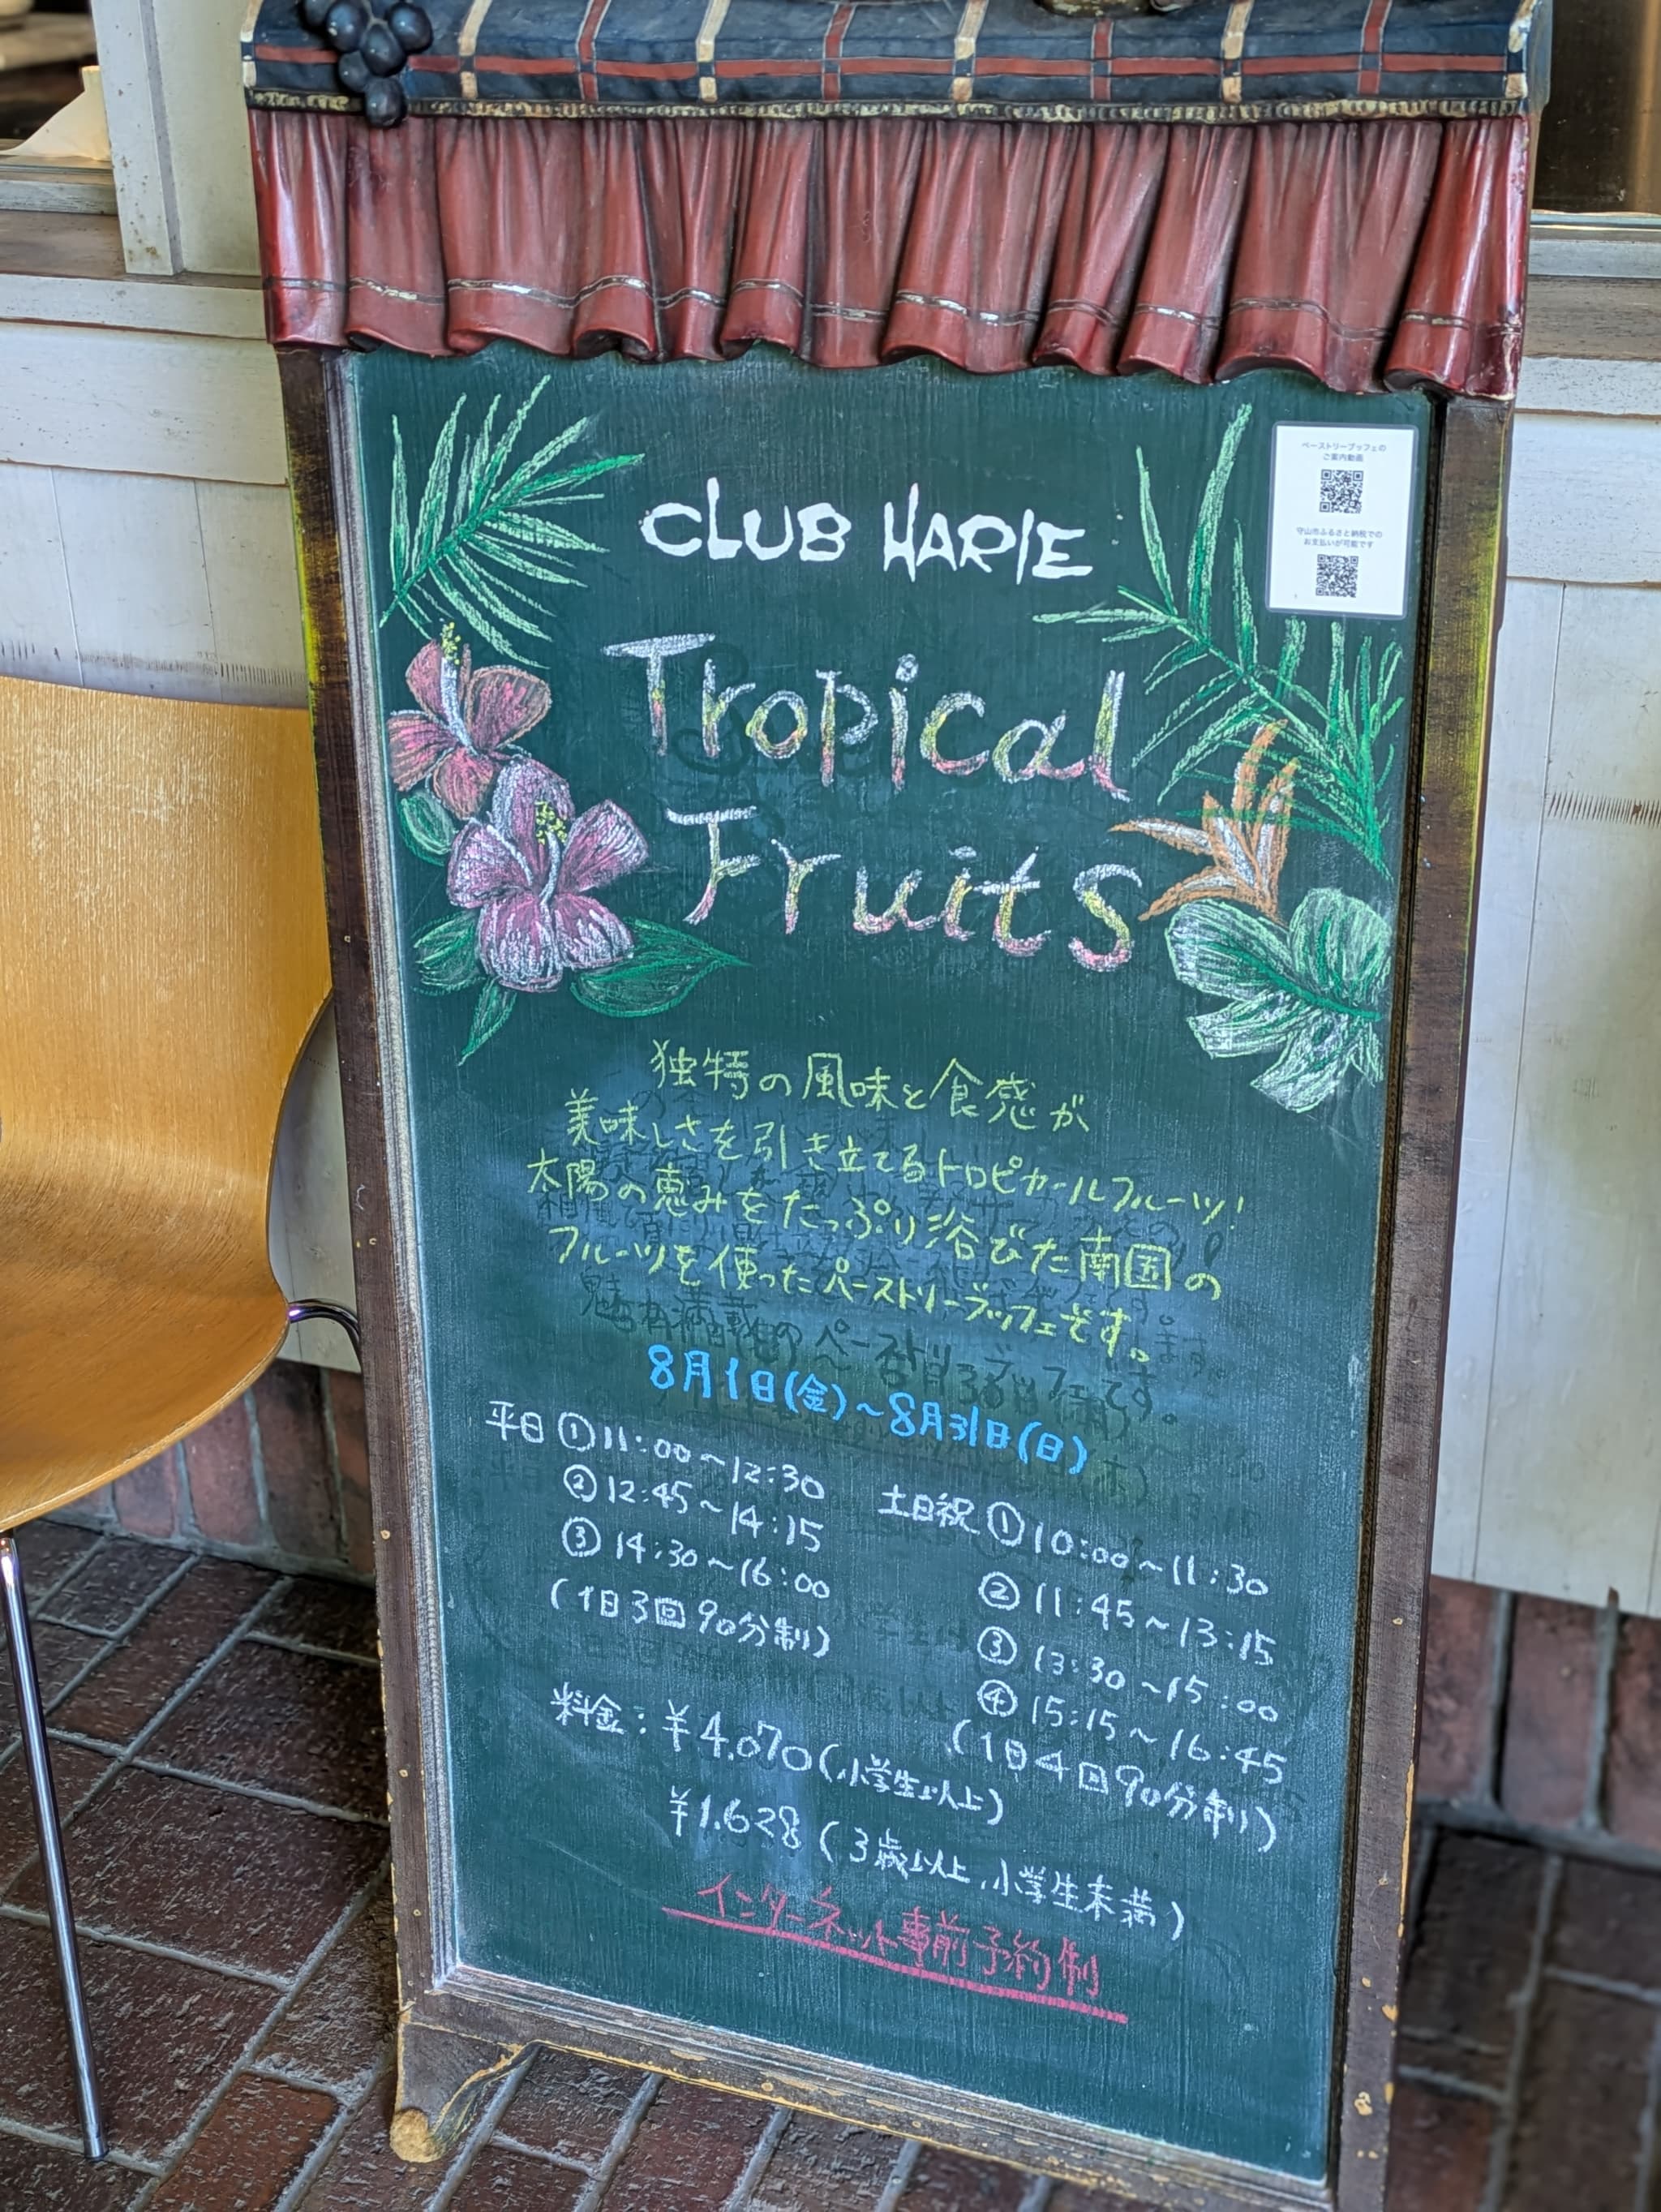 ペーストリーブッフェの
ご案内動画
守山市ふるさと納税での
お支払いが可能です
CLUB HARIE
Tropical
Fruits
独特の風味と食感が
美味しさを引き立てるトロピカールフルーツ!
太陽の恵みをたっぷり浴びた南国の
フルーツを使ったペーストリーブッフェです。
8月1日(金)~8月31日(日)
平日 ①11:00~12:30
②12:45~14:15
③14:30~16:00
(1日3回90分制)
土日祝 ①10:00~11:30
②11:45~13:15
③13:30~15:00
④15:15~16:45
(1日4回90分制)
料金:¥4.070(小学生以上)
¥1.628(3歳以上、小学生未満)
インターネット事前予約制